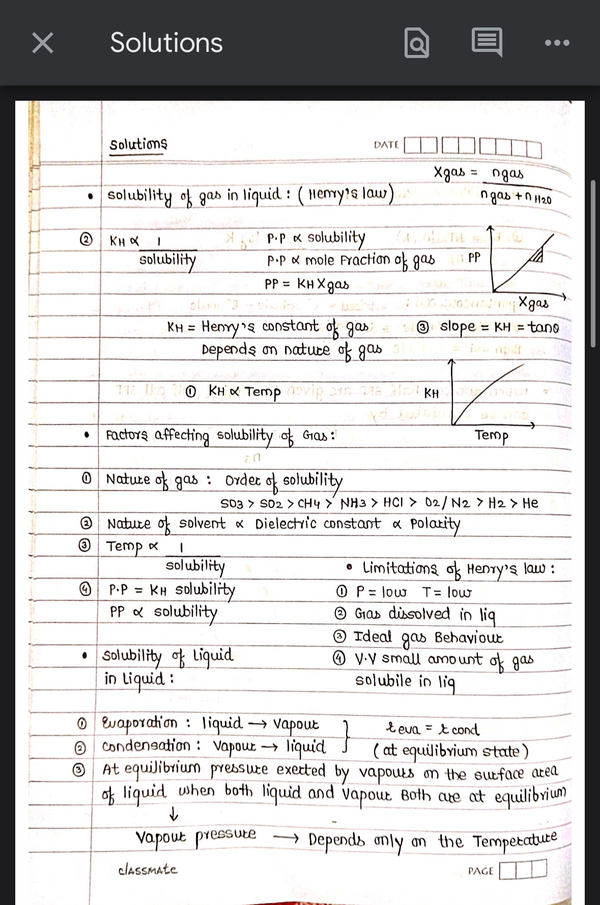 Solutions
Solutions
DATE
Xgas = ngas / ngas + nH2O
• Solubility of gas in liquid : (Henry's law)
② KH ∝ 1 / solubility
P.P ∝ solubility
P.P ∝ mole Fraction of gas
PP = KH Xgas
PP
Xgas
KH = Henry's constant of gas
③ slope = KH = tanθ
Depends on nature of gas
① KH ∝ Temp
KH
Temp
• Factors affecting solubility of Gas :
① Nature of gas : Order of solubility
SO3 > SO2 > CH4 > NH3 > HCl > O2/N2 > H2 > He
② Nature of solvent ∝ Dielectric constant ∝ Polarity
③ Temp ∝ 1 / solubility
④ P.P = KH solubility
PP ∝ solubility
• Limitations of Henry's law :
① P = low T = low
② Gas dissolved in liq
③ Ideal gas Behaviour
④ V.V small amount of gas
solubile in liq
• Solubility of Liquid
in Liquid :
① Evaporation : liquid → Vapour
② Condensation : Vapour → liquid
r eva = r cond
(at equilibrium state)
③ At equilibrium pressure exerted by vapours on the surface area
of liquid when both liquid and Vapour Both are at equilibrium
↓
Vapour pressure → Depends only on the Temperature
classmate
PAGE